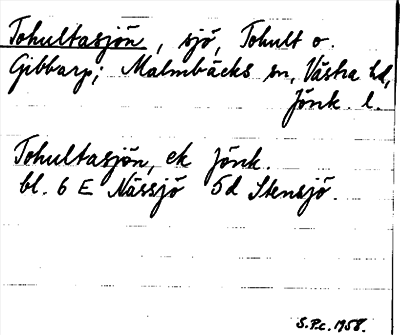 Tohultasjön, sjö, Tohult o.
Gibbarp; Malmbäcks sn, Västra hd,
Jönk. l.
Tohultasjön, ek Jönk.
bl. 6 E Nässjö 5d Stensjö.
S.Pc. 1958.